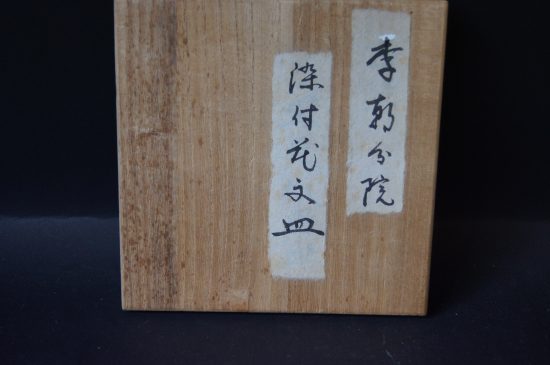 李朝分院
染付花文皿